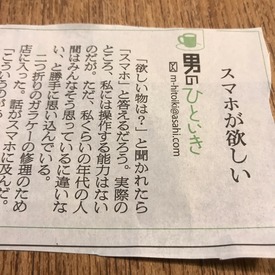 男のひといき
m-hitoiki@asahi.com
スマホが欲しい
「欲しい物は？」と聞かれたら
「スマホ」と答えるだろう。実際の
ところ、私には操作する能力はない
のだが。ただ、私くらいの年代の人
間はみんなそう思っているに違いな
い、と勝手に思い込んでいる。
二つ折りのガラケーの修理のため
店に入った。話がスマホに及んだ。